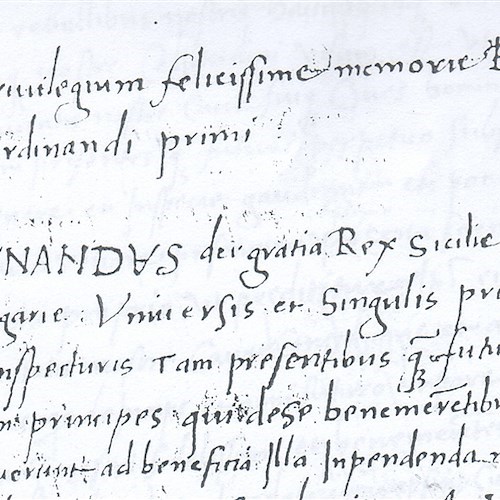 rivilegium felicissime memorie R
rdinandi primi
NANDVS dei gratia Rex Sicilie
garie . Vniuersis et Singulis pre
nspecturis Tam presentibus q̃ futu
principes qui de se benemerẽtibu
uerunt ad beneficia Illa Inpendenda